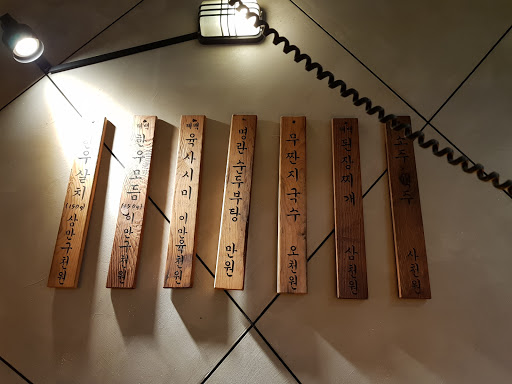 한우살치 (150g) 삼만구천원
한우모듬 (150g) 이만구천원
육사시미 이만육천원
명란순두부탕 만원
무짠지국수 오천원
된장찌개 삼천원
사천원